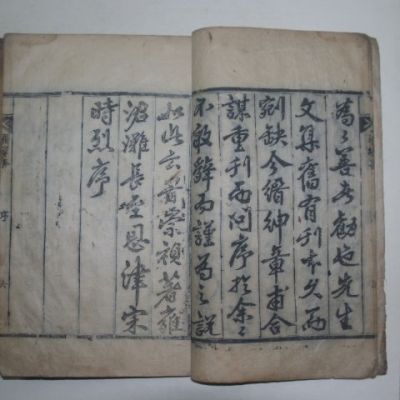 為〻善者勸也先生
文集舊有刊本久而
刓缺今縉紳章甫合
謀重刊而問序於余〻
不敢辭而謹為之說
如此云旹崇禎著雍
涒灘長至恩津宋
時烈序
序